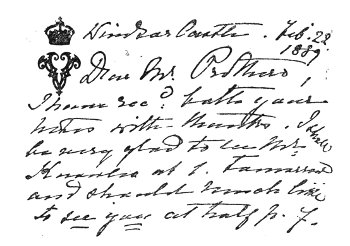 Windsor Castle. Feb. 22
1889
Dear Mr. Prothero,
I have rec.d both your
notes with thanks. I shall
be very glad to see Mr.
at 1. tomorrow
and should much like
to see you at half p. 7.